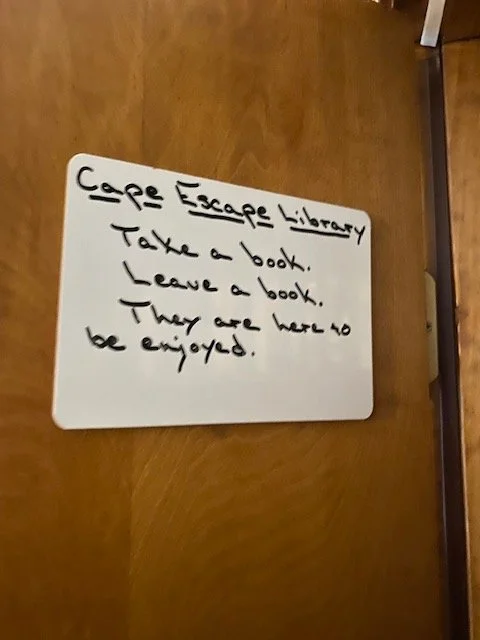 Cape Escape Library
Take a book.
Leave a book.
They are here to
be enjoyed.